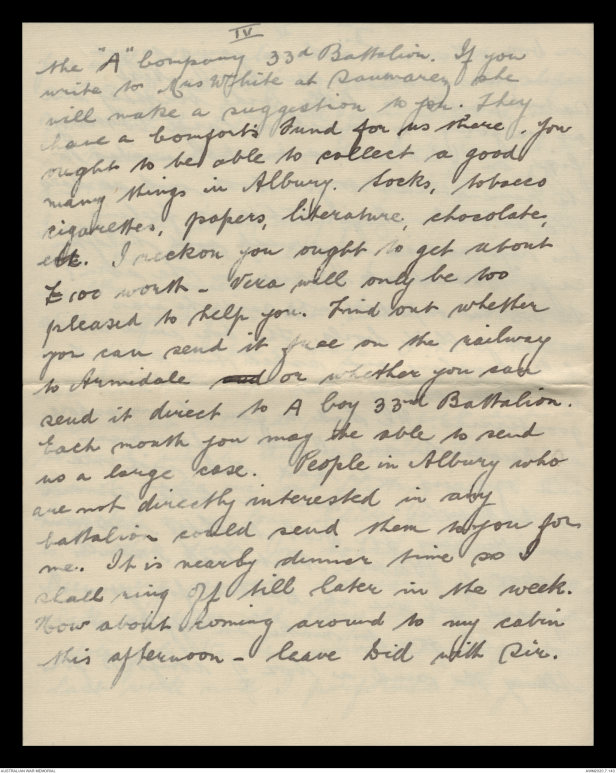 IV
the "A" Company 33rd Battalion. If you
write to Mrs White at Saumarez she
will make a suggestion to you. They
have a Comforts Fund for us there. You
ought to be able to collect a good
many things in Albury. Socks, tobacco
cigarettes, papers, literature, chocolate,
etc. I reckon you ought to get about
£100 worth - Vera will only be too
pleased to help you. Find out whether
you can send it free on the railway
to Armidale and or whether you can
send it direct to A Coy 33rd Battalion.
Each month you may be able to send
us a large case. People in Albury who
are not directly interested in any
battalion could send them to you for
me. It is nearly dinner time so I
shall ring off till later in the week.
How about coming around to my cabin
this afternoon - leave Did with Sir.
AUSTRALIAN WAR MEMORIAL